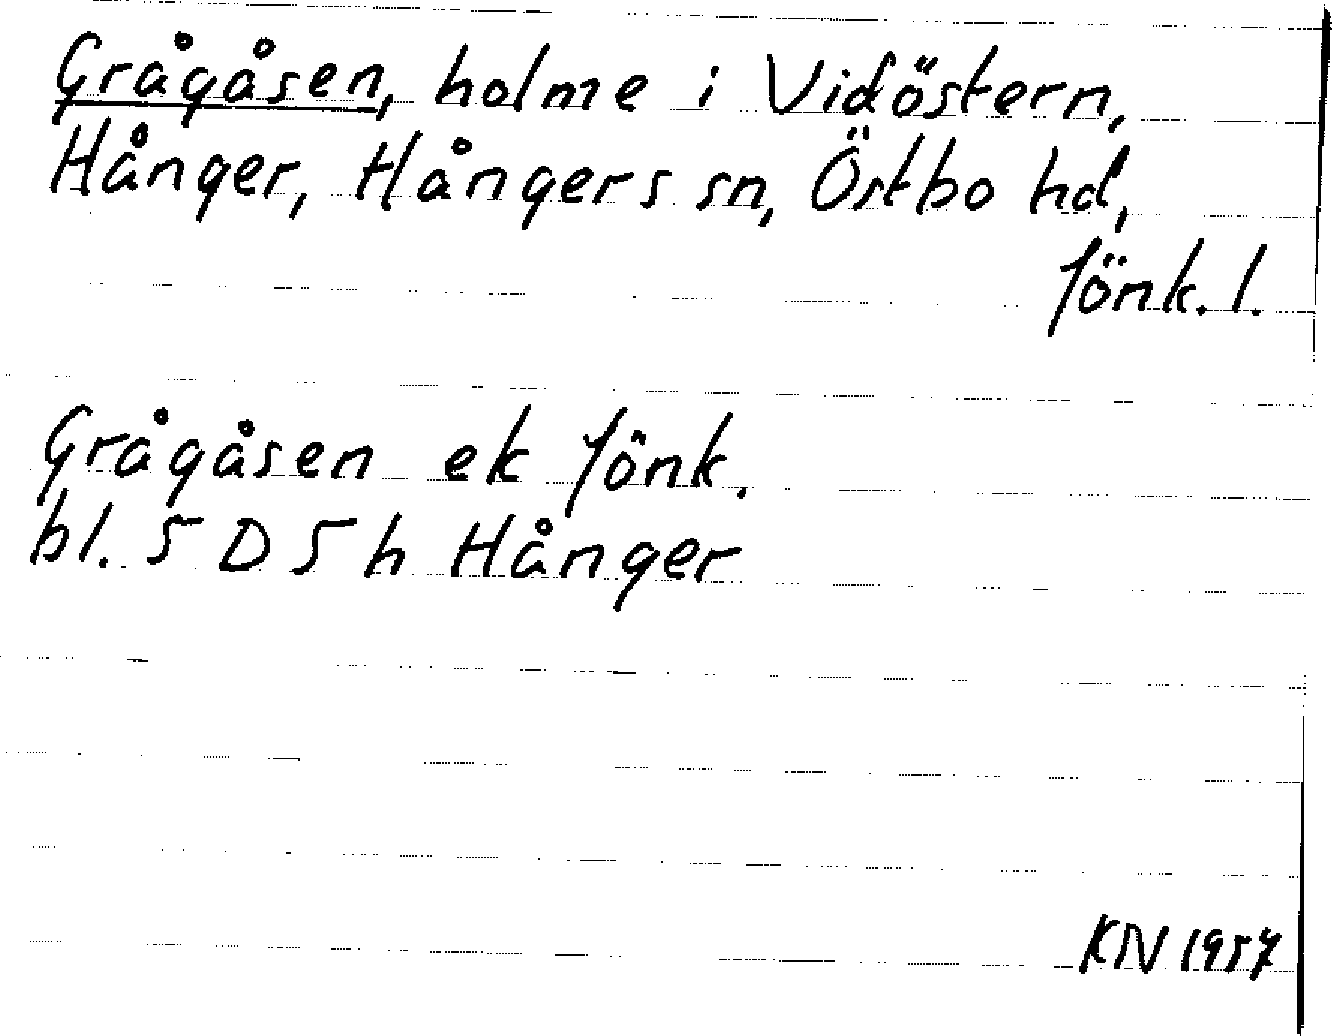 Grågåsen, holme i Vidöstern,
Hånger, Hångers sn, Östbo hd,
Jönk. l.
Grågåsen ek Jönk.
bl. 5 D 5 h Hånger
KN 1957